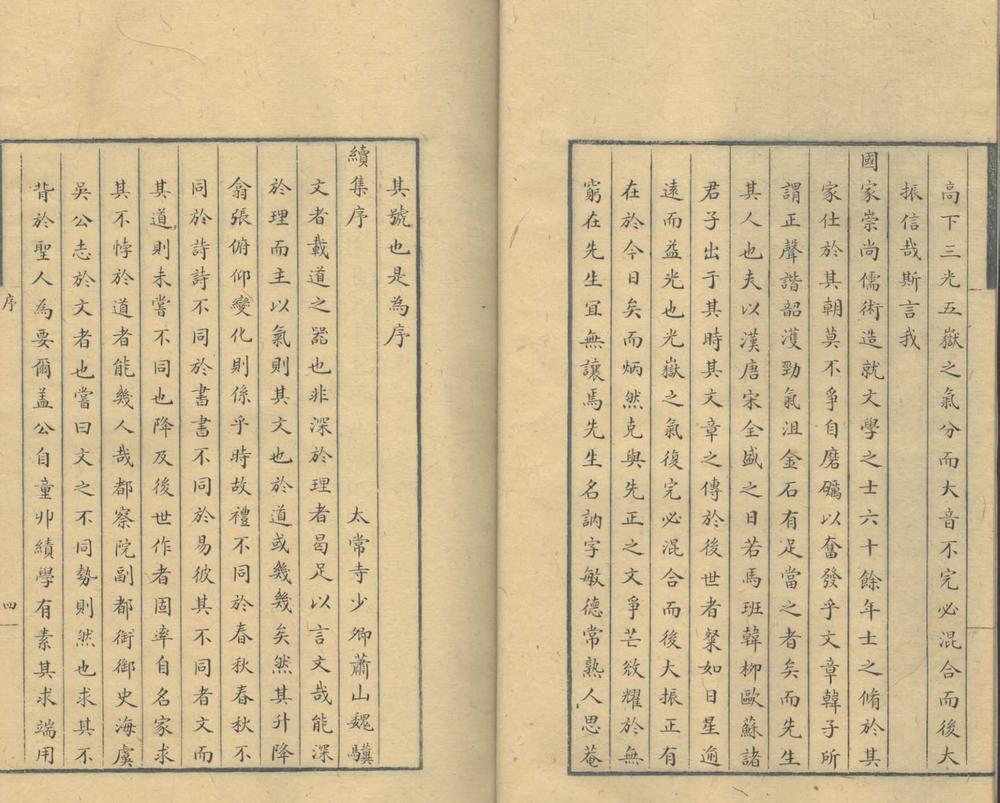 高下三光五嶽之氣分而大音不完必混合而後大
振信哉斯言我
國家崇尚儒術造就文學之士六十餘年士之脩於其
家仕於其朝莫不爭自磨礪以奮發乎文章韓子所
謂正聲諧韶濩勁氣沮金石有足當之者矣而先生
其人也夫以漢唐宋全盛之日若馬班韓柳歐蘇諸
君子出于其時其文章之傳於後世者粲如日星逾
遠而益光也光嶽之氣復完必混合而後大振正有
在於今日矣而炳然克與先正之文爭芒效耀於無
窮在先生宜無讓焉先生名訥字敏德常熟人思菴
其號也是為序
續集序 太常寺少卿蕭山魏驥
文者載道之器也非深於理者曷足以言文哉能深
於理而主以氣則其文也於道或幾幾矣然其升降
翕張俯仰變化則係乎時故禮不同於春秋春秋不
同於詩詩不同於書書不同於易彼其不同者文而
其道則未嘗不同也降及後世作者固率自名家求
其不悖於道者能幾人哉都察院副都御史海虞
吳公志於文者也嘗曰文之不同勢則然也求其不
背於聖人為要爾盖公自童丱績學有素其求端用
序
四